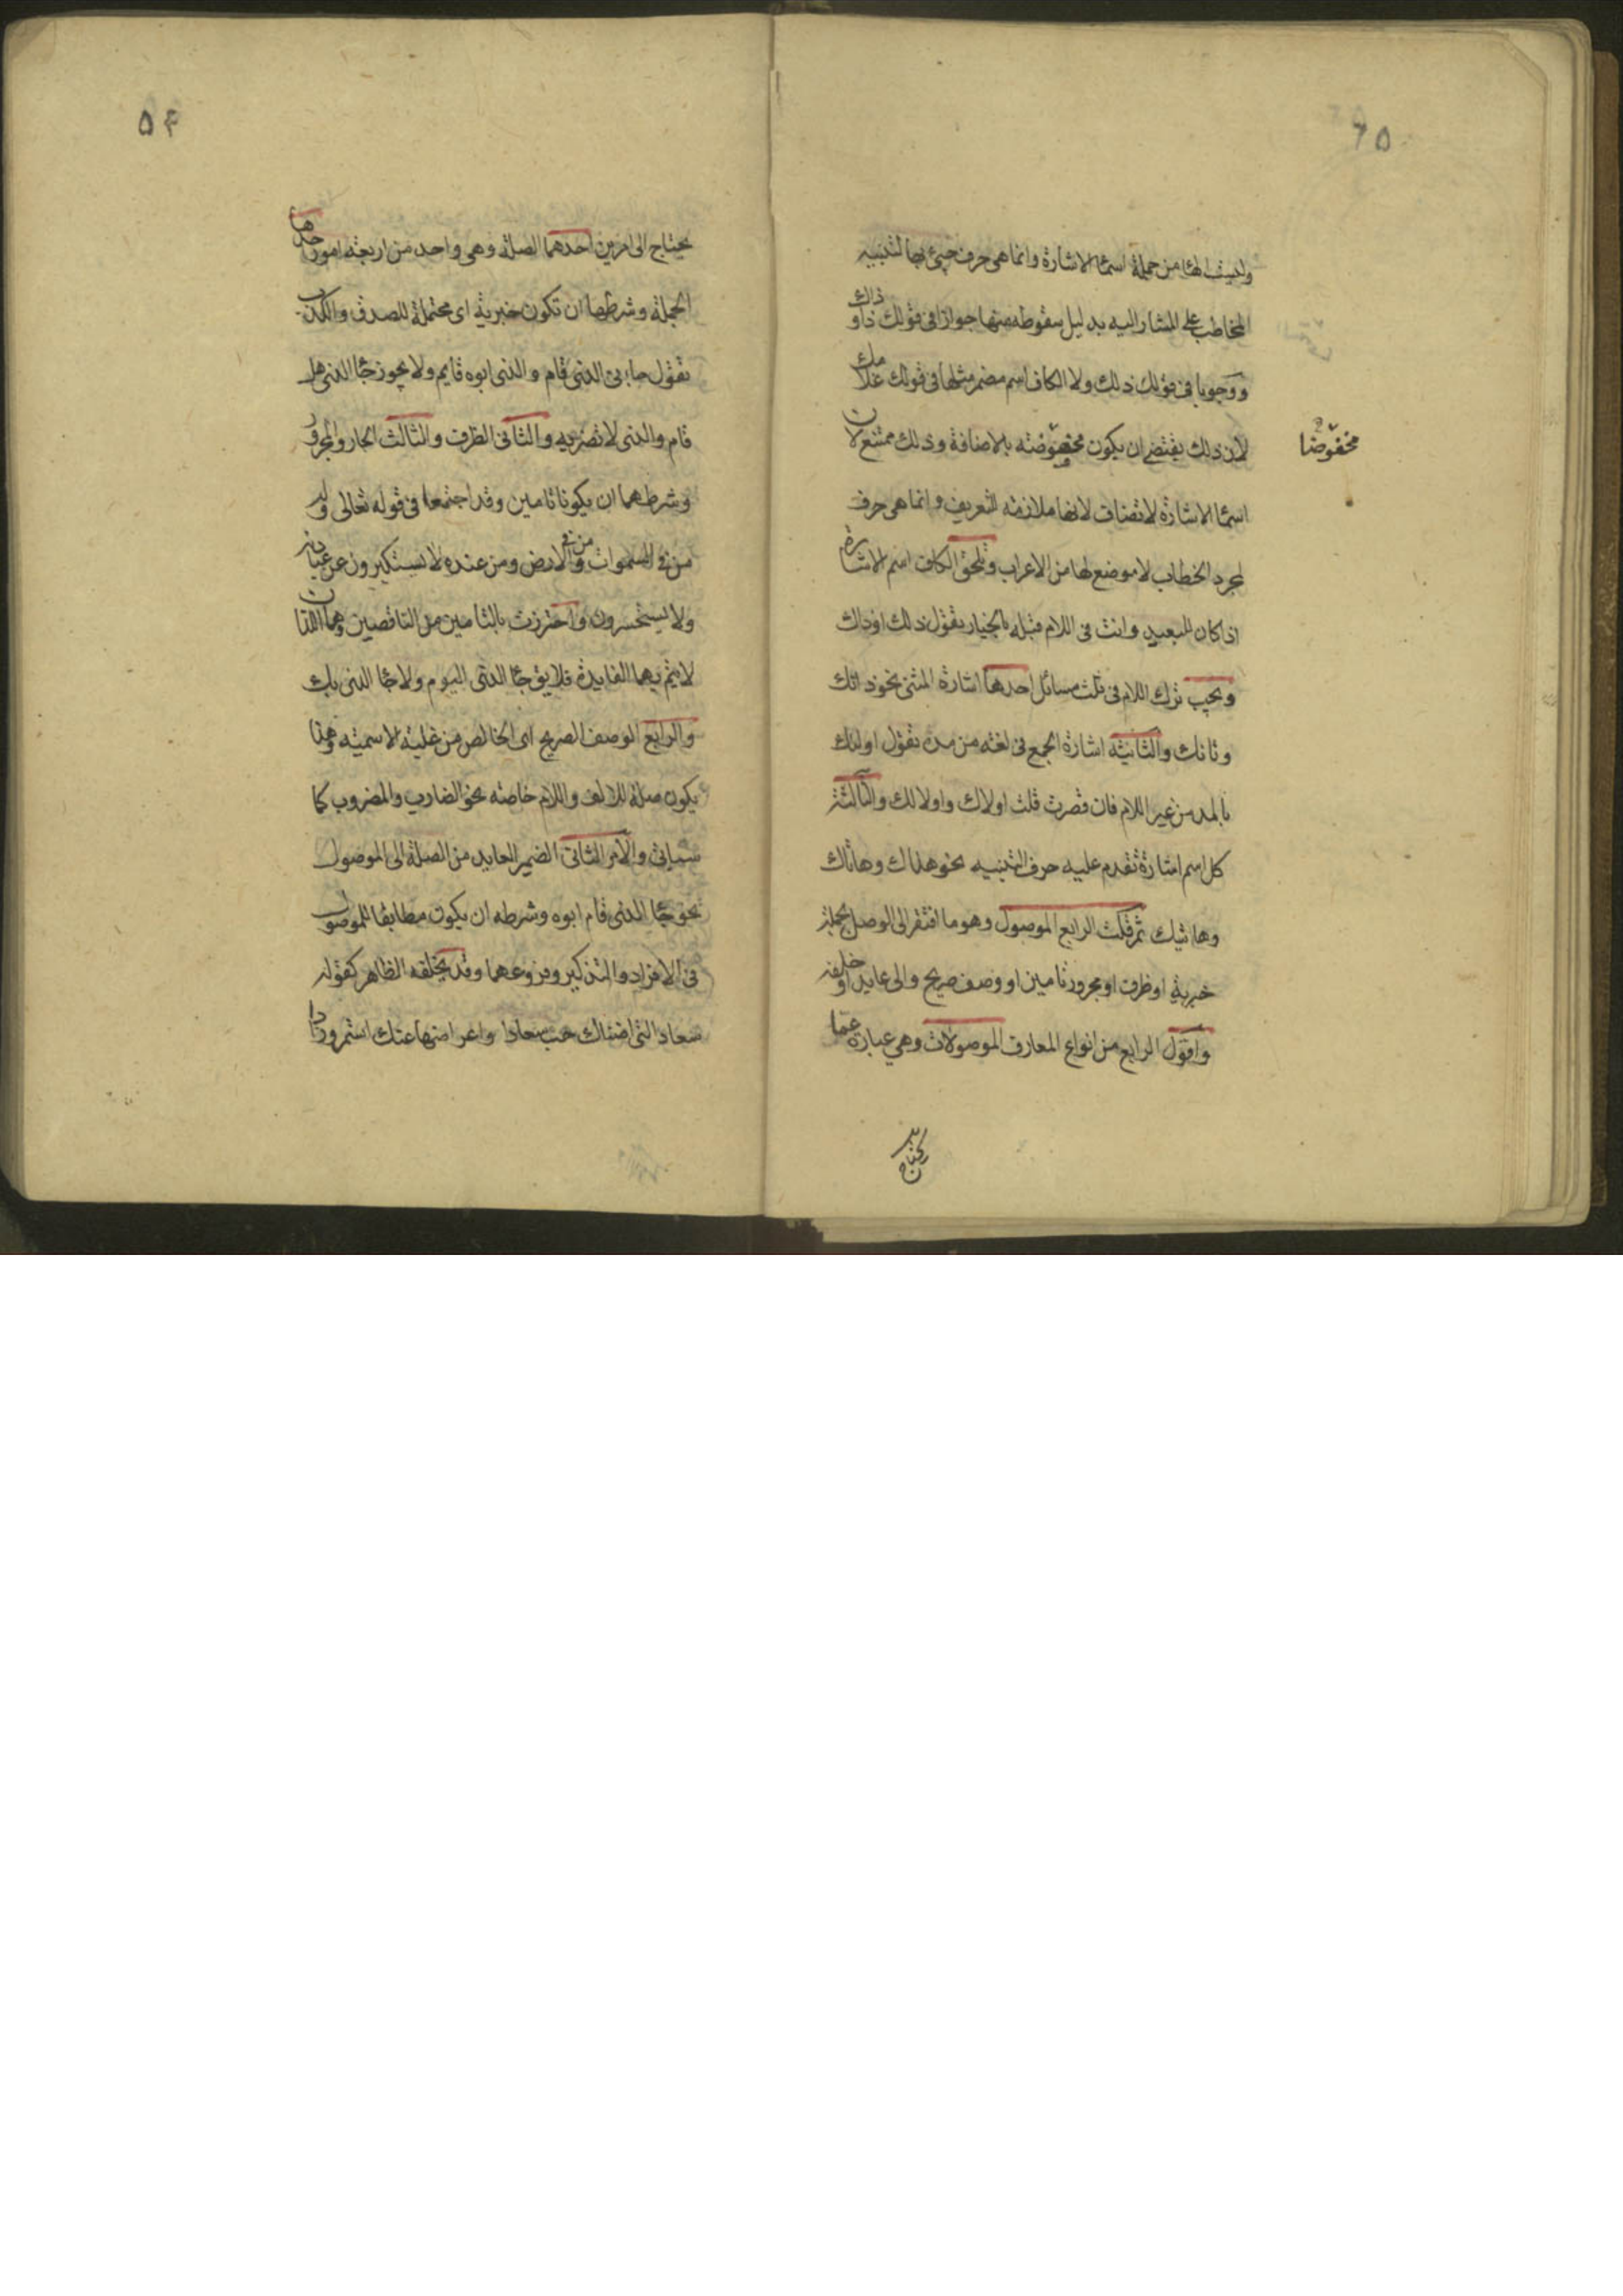 ٦٥
وليست الها من جملة اسما الاشارة وانما هى حرف جيئ بها لتنبيه
المخاطب على المشار اليه بدليل سقوطه منها جوازا فى قولك ذا و ذاك
ووجوبا فى قولك ذلك ولا الكاف اسم مضمر مثلها فى قولك غلامك
لان ذلك يقتضى ان يكون مخفوضة بالاضافة وذلك ممتنع لان
مخفوضا
اسما الاشارة لا تضاف لانها ملازمة للتعريف وانما هى حرف
لمجرد الخطاب لا موضع لها من الاعراب وتلحق الكاف اسم الاشارة
اذا كان للبعيد وانت فى اللام قبله بالخيار تقول ذلك او ذاك
ويجب ترك اللام فى ثلث مسائل احدها اشارة المثنى نحو ذانك
وتانك والثانية اشارة الجمع فى لغة من مده تقول اولئك
بالمد من غير اللام فان قصرت قلت اولاك واولالك والثالثة
كل اسم اشارة تقدم عليه حرف التنبيه نحو هذاك وهاتاك
وهاتيك ثم قلت الرابع الموصول وهو ما افتقر الى الوصل بجملة
خبرية او ظرف او مجرور تامين او وصف صريح والى عايد او خلفه
واقول الرابع من انواع المعارف الموصولات وهى عبارة عما
يحتاج
٥۴
يحتاج الى امرين احدهما الصلة وهى واحد من اربعة امور احدها
الجملة وشرطها ان تكون خبرية اى محتملة للصدق والكذب
تقول جاءنى الذى قام والذى ابوه قايم ولا يجوز جا الذى هل
قام والذى لا تضربه والثانى الظرف والثالث الجار والمجرور
وشرطهما ان يكونا تامين وقد اجتمعا فى قوله تعالى وله
من فى السموات ومن فى الارض ومن عنده لا يستكبرون عن عبادته
ولا يستحسرون واحترزت بالتامين من الناقصين وهما اللذان
لا يتم بهما الفايدة فلا يق جا الذى اليوم ولا جا الذى بك
والرابع الوصف الصريح اى الخالص من غلبة الاسمية وهذا
يكون صلة للالف واللام خاصة نحو الضارب والمضروب كما
سياتى والامر الثانى الضمير العايد من الصلة الى الموصول
نحو جا الذى قام ابوه وشرطه ان يكون مطابقا للموصول
فى الافراد والتذكير وفروعهما وقد يخلفه الظاهر كقوله
سعاد التى اضناك حب سعادا واعراضها عنك استمر وزادا